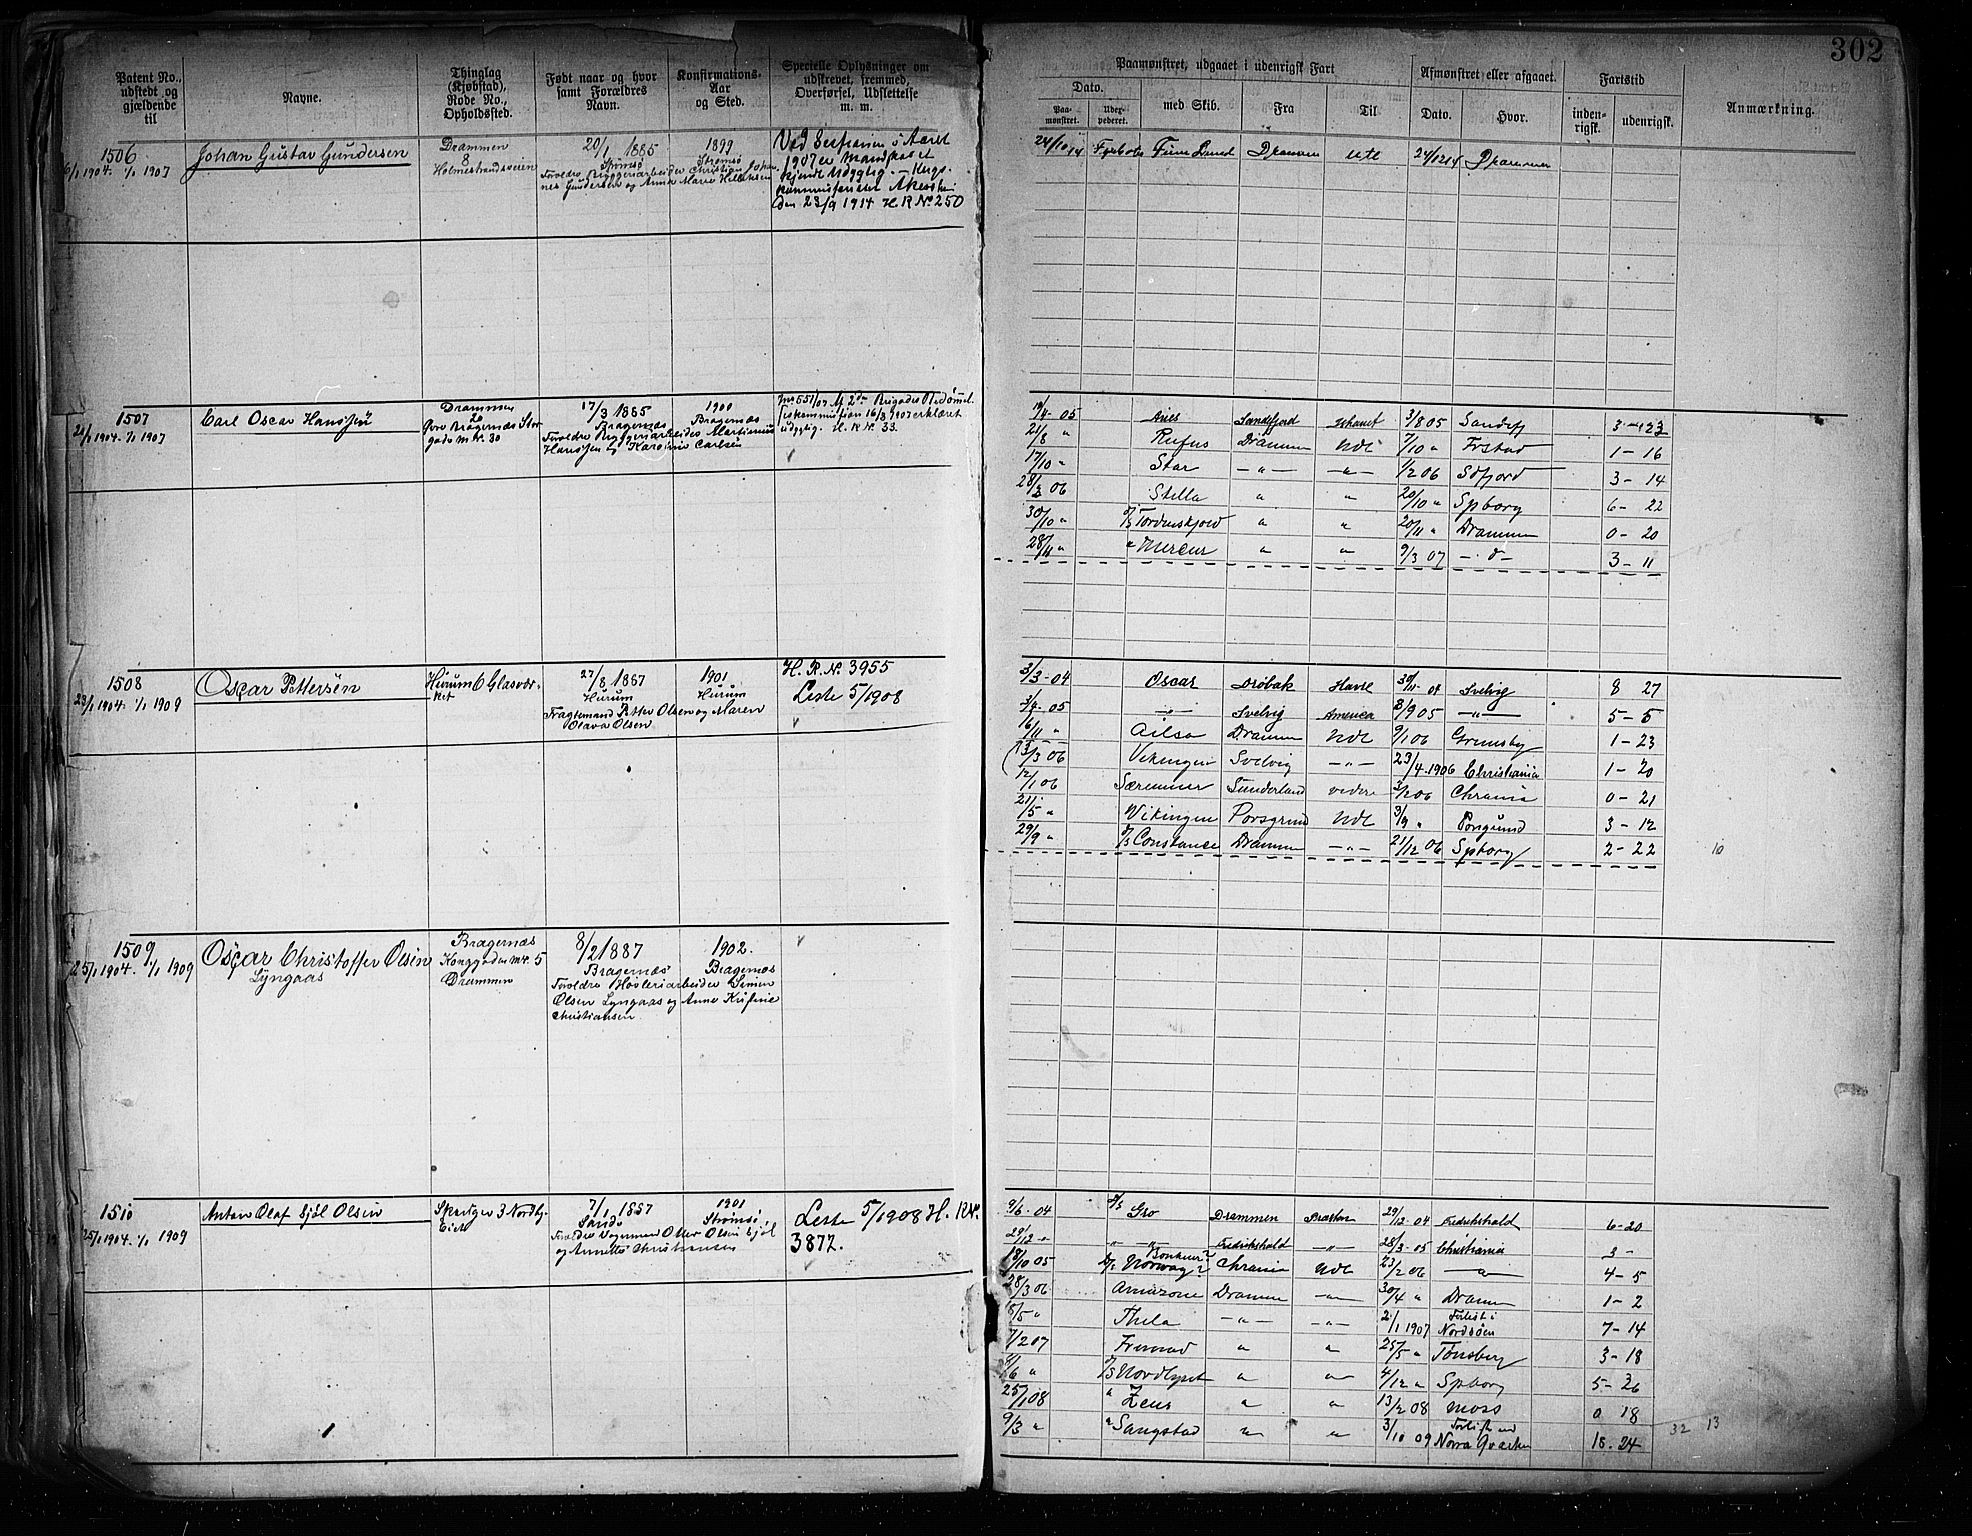 302
Patent No., udstedt og gjældende til
Navne.
Thinglag (Kjøbstad), Rode No., Opholdssted.
Født naar og hvor samt Forældres Navn.
Konfirmations-Aar og Sted.
Specielle Oplysninger om udskrevet, fremmed, Overførsel, Udslettelse m. m.
Paamønstret, udgaaet i udenrigsk Fart
Afmønstret eller afgaaet.
Fartstid
Anmærkning.
Dato.
Paa-mønstret.
med Skib.
Fra
Til
Dato.
Hvor.
inden-rigsk.
udenrigsk.
1506
6/1 1904. 1/1 1907
Johan Gustav Gundersen
Drammen
8
Holmestrandsveien
20/1 1885
Strømsø
Forældre Byggeriarbeider Christian Johan-
nes Gundersen og Anna Marie
1899
Strømsø
Ved Sessionen i Aaret
1907 er Mandskabet
kjendt Udygtig. - Krigs-
den 23/9 1914 H R No 250
24/10 14
Drammen
ute
24/12 14
Drammen
1507
1904. 1/1 1907
Carl Oscar Hanssen
Drammen
20
Øvre Bragernæs Stor-
gade No. 30
17/3 1885
Bragernæs
Forældre Byggeriarbeider Martinius
Hanssen og Karoline Carlsen
1900
Bragernæs
No 551/07 Af 2den Brigades Bedømmel-
seskommission 16/3 1907 erklæret
udygtig. H. R. N. 33.
05 Aries Sandefjord 3/8 05 Sandefj 3 - 23
21/8 " Rufus Drammen Udl 7/10 " Frstad 1 - 16
17/10 " Star - " - - " - 1/2 06 3 - 14
28/3 06 Stella " " 20/10 " Spborg 6 - 22
30/10 " D/S Tordenskjold " " 20/11 " Drammen 0 - 20
28/11 " " Mercur " " 9/3 07 - " - 3 - 11
1508
23/1 1904. 1/1 1909
Oscar Pettersen
Hurum 6 Glasvær-
ket
27/8 1887
Hurum
Fragtemand Petter Olsen og Maren
Olava Olsen
1901
Hurum
H. R. N. 3955
Leste 5/1908
3/3 - 04 Oscar Drøbak Havre 30/11 - 04 Svelvig 8 27
3/4 - 05 - " - Svelvig America 8/9 05 - " - 5 - 5
16/11 " Ailsa Drammen Udl 9/1 06 Grimsby 1 - 23
13/3 06 Vikingen Svelvig - " - 23/4 1906 Christiania 1 - 20
12/1 06 Sunderland videre 3/2 06 Chrania 0 - 21
21/5 " Vikingen Porsgrund Udl 3/9 " Porsgrund 3 - 12
29/9 " D/S Constance Drammen - " - 21/12 06 Spborg 2 - 22
10
1509
25/1 1904. 1/1 1909
Oscar Christoffer Olsen
Lyngaas
Bragernæs
Konggaden No. 5
Drammen
8/2 1887
Bragernæs
Forældre Høvleriarbeider Simen
Olsen Lyngaas og Anne Kristine
Christiansen
1902.
Bragernæs
1510
25/1 1904. 1/1 1909
Anton Olaf Sjøl Olsen
Skouger 3 Nordby
Eiet
7/1 1887
Sande
Forældre Vognmand Olser Olsen Sjøl
og Annette Christiansen
1901
Strømsø
Leste 5/1908 H. R N.
3872.
9/6 - 04 S/S Gro Drammen 29/12 - 04 Fredrikshald 6 - 20
29/12 - " " - " - Fredrikshald - " - 28/3 - 05 Christiania 3 -
18/10 05 Norway? Chrania Udl 23/2 06 - " - 4 - 5
28/3 06 Amazone Drammen - " - 30/4 " Drammen 1 - 2
8/5 " Thela - " - - " - 2/1 1907 Forlist i Nordsøen 7 - 14
7/2 07 Fremad " " 25/5 " Tønsberg 3 - 18
8/6 " D/S Nordlyset " " 4/12 " Spborg 5 - 26
25/1 08 " Zeus " " 13/2 08 Moss 0 18
9/3 " " Sangstad " " 3/10 09 Norra Qvarken 18 - 24
32 13